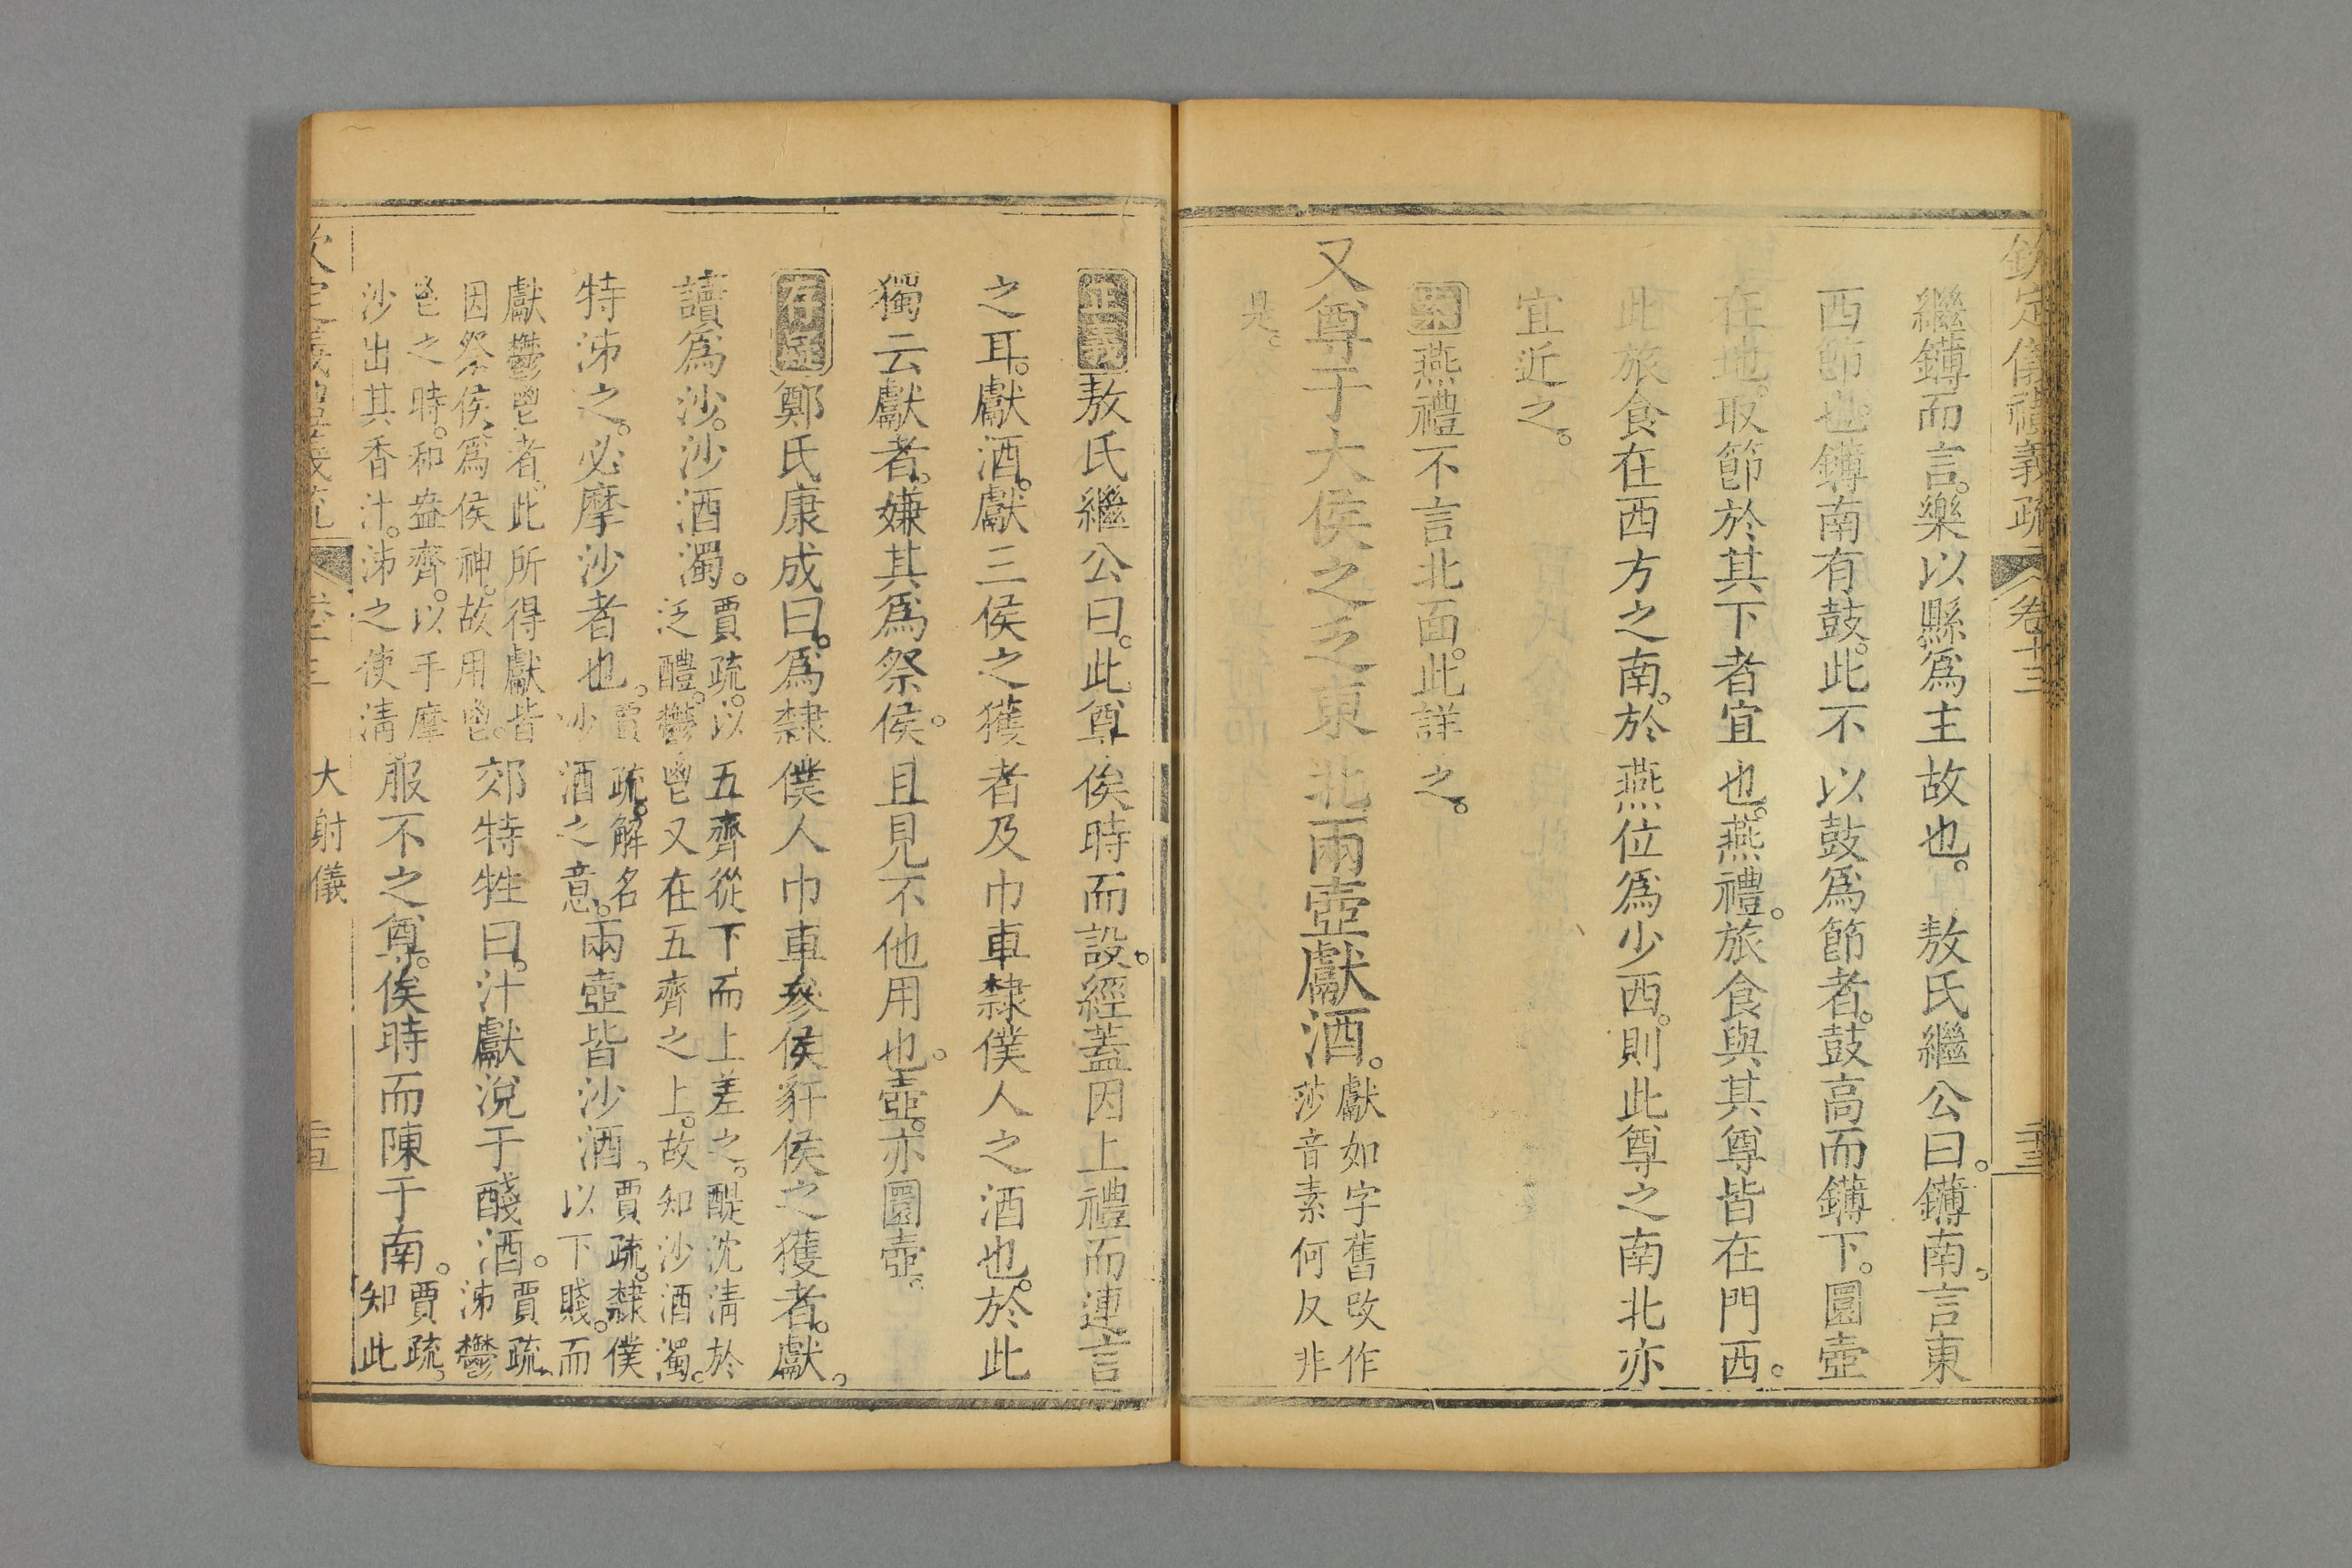 欽定儀禮義疏 卷十三
繼鑮而言。樂以縣爲主故也。敖氏繼公曰。鑮南。言東
西節也。鑮南有鼓。此不以鼓爲節者。鼓高而鑮下。圜壺
在地。取節於其下者宜也。燕禮。旅食與其尊皆在門西。
此旅食在西方之南。於燕位爲少西。則此尊之南北亦
宜近之。
燕禮不言北面。此詳之。
又尊于大侯之乏東北兩壺獻酒。獻如字舊改作
莎音素何反非
是。
正義敖氏繼公曰。此尊俟時而設。經蓋因上禮而連言
之耳。獻酒。獻三侯之獲者及巾車隸僕人之酒也。於此
獨云獻者。嫌其爲祭侯。且見不他用也。壺。亦圜壺。
存疑鄭氏康成曰。爲隸僕人巾車參侯豻侯之獲者。獻。
讀爲沙。沙酒濁。賈疏。以五齊從下而上差之。醍沈淸於
泛醴。鬱鬯又在五齊之上。故知沙酒濁。
特泲之。必摩沙者也。賈疏。解名
沙酒之意。兩壺皆沙酒。賈疏。隸僕
以下賤。而
獻鬱鬯者。此所得獻皆
因祭侯。爲侯神。故用鬯。郊特牲曰。汁獻涚于醆酒。賈疏。
泲鬱
鬯之時。和盎齊。以手摩
沙出其香汁。泲之使淸服不之尊。俟時而陳于南。賈疏。
知此
欽定儀禮義疏 卷十三 大射儀